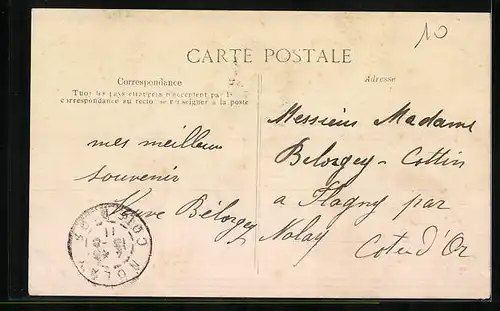 10
CARTE POSTALE
Correspondance
Tous les pays étrangers n'acceptent pas
correspondance au recto se renseigner à la poste
Adresse
mes meilleurs
souvenir
Veuve Bélorgey
Messieurs Madame
Belorgey-Cottin
a Flagny par
Nolay
Cote d'Or
NOLAY COTE D'OR